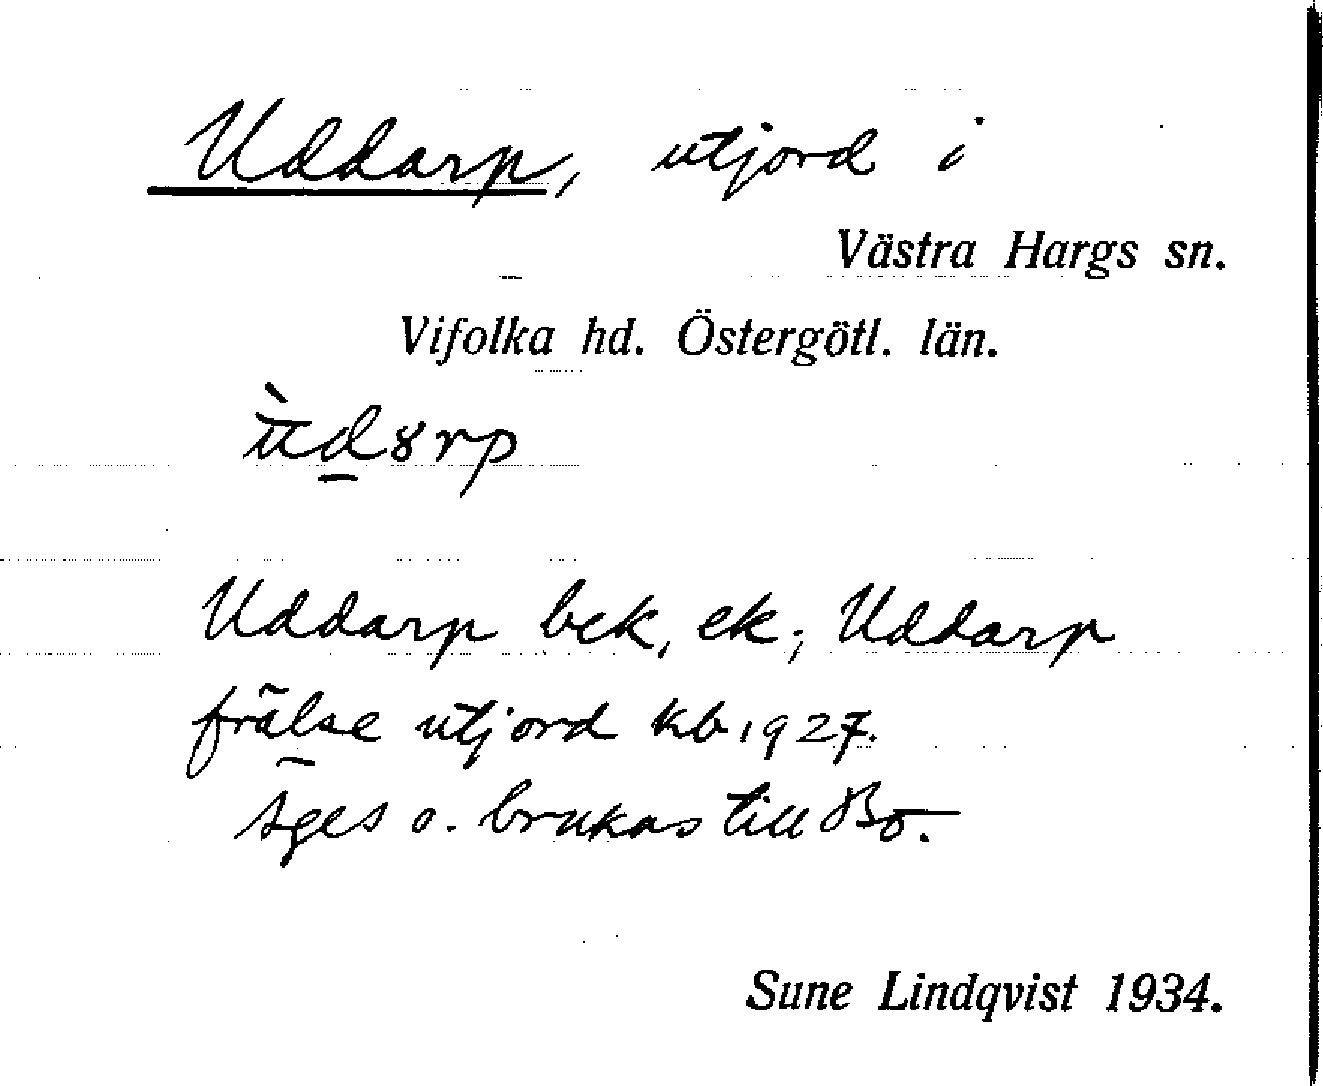 Uddarp, utjord i
Västra Hargs sn.
Vifolka hd. Östergötl. län.
Uddarp bek, ek; Uddarp
frälse utjord kb 1927.
Äges o. brukas till Bo.
Sune Lindqvist 1934.